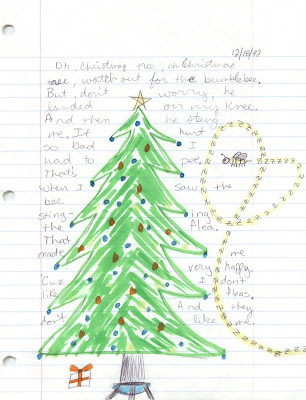 12/18/97
Oh, Christmas tree, oh Christmas
tree, watch out for the bumblebee.
But don't worry, he
landed on my knee.
And then he stung
me. It hurt
so bad I
had to pee.
That's
when I saw the
bee
sting- ing
the flea.
That
made me
very happy.
'Cuz I don't
like fleas.
And they
don't like me.
zzzzzz